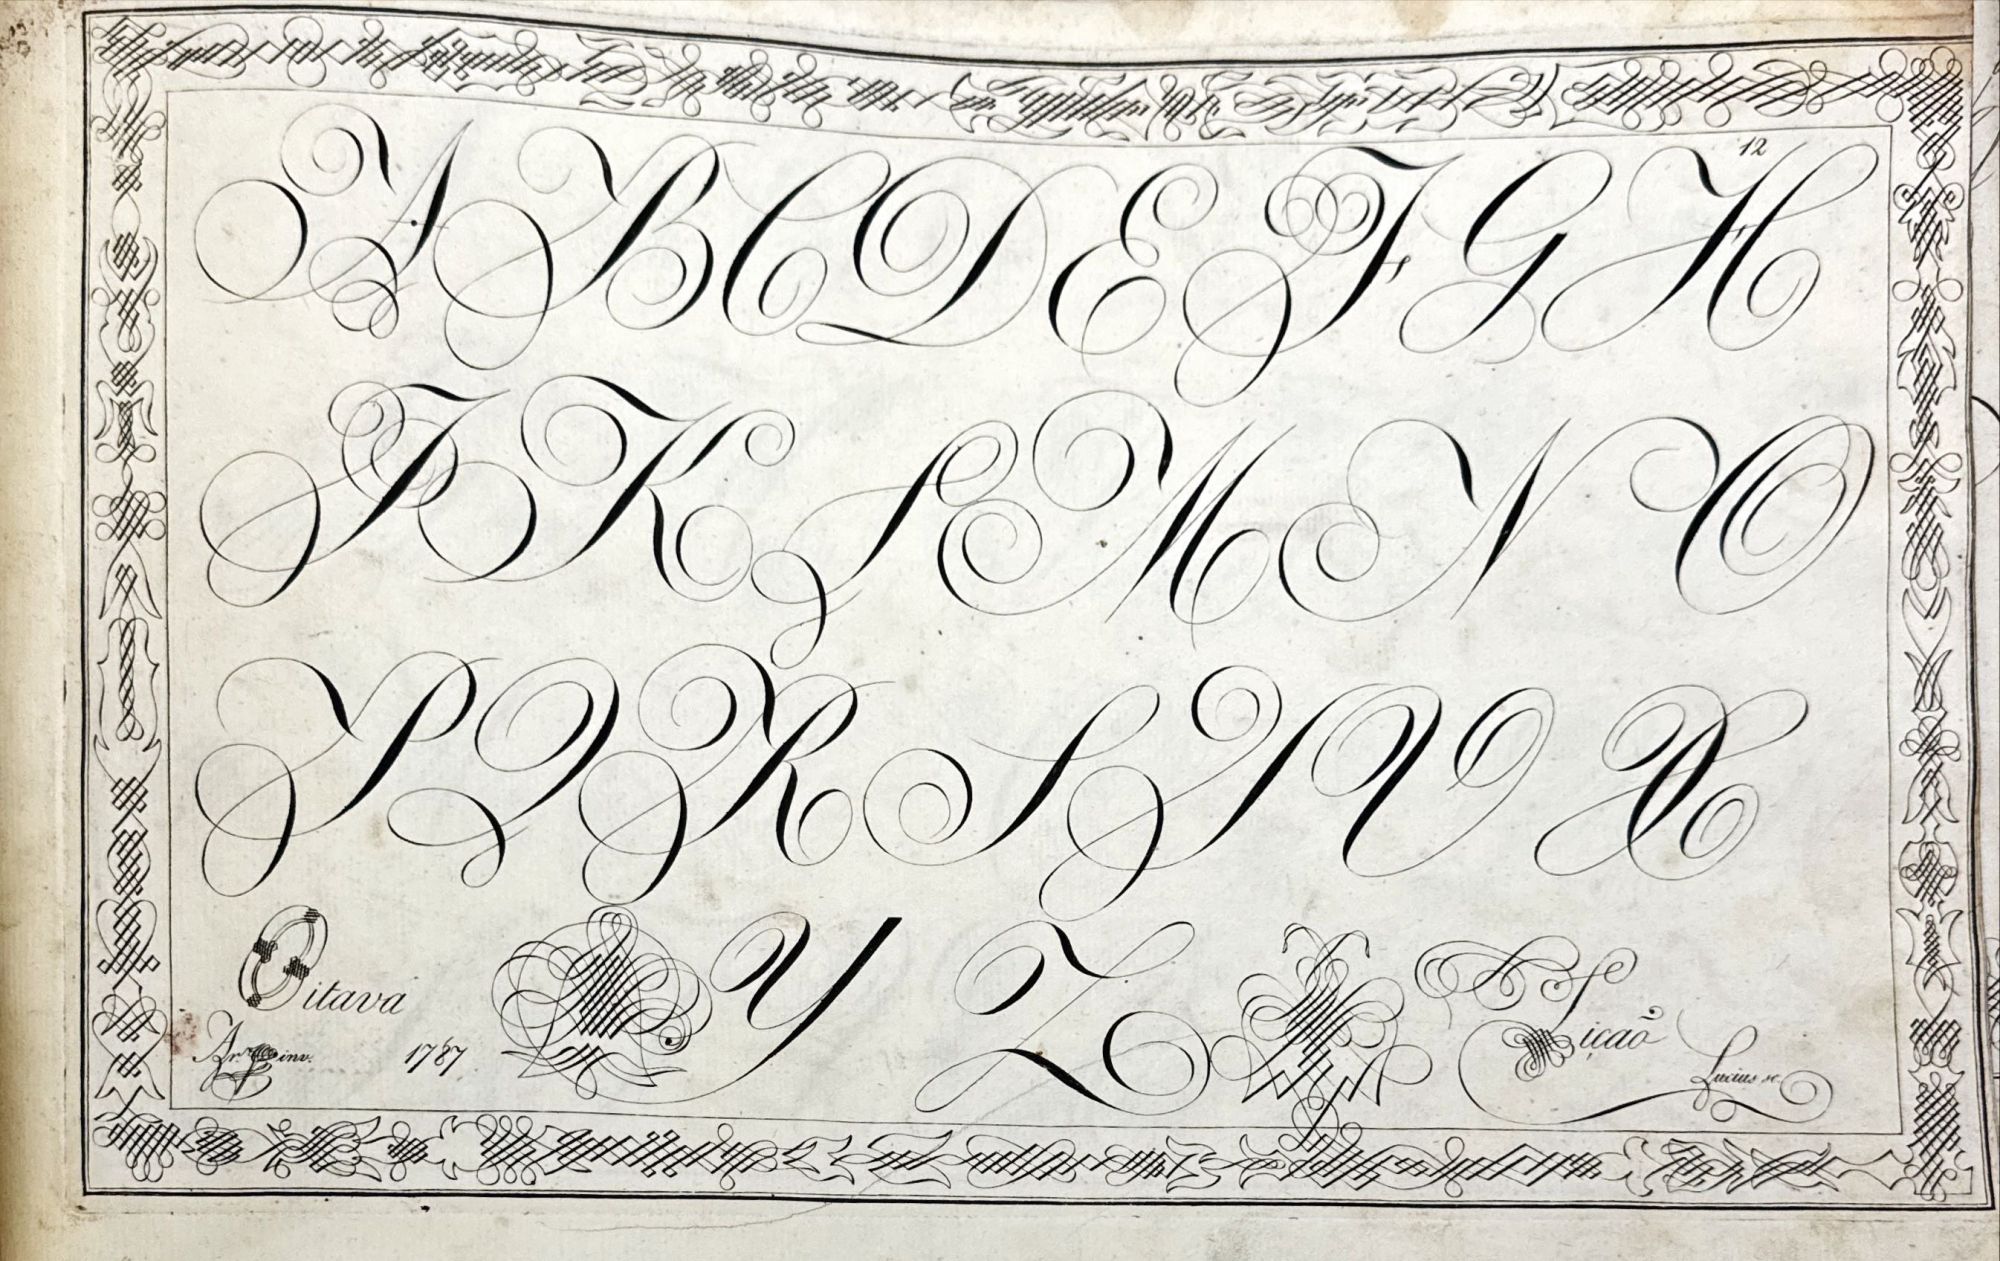 12
A B C D E F G H
I K L M N O
P Q R S T V X
Y Z
Oitava Liçaõ
inv. 1787 Lucius sc.